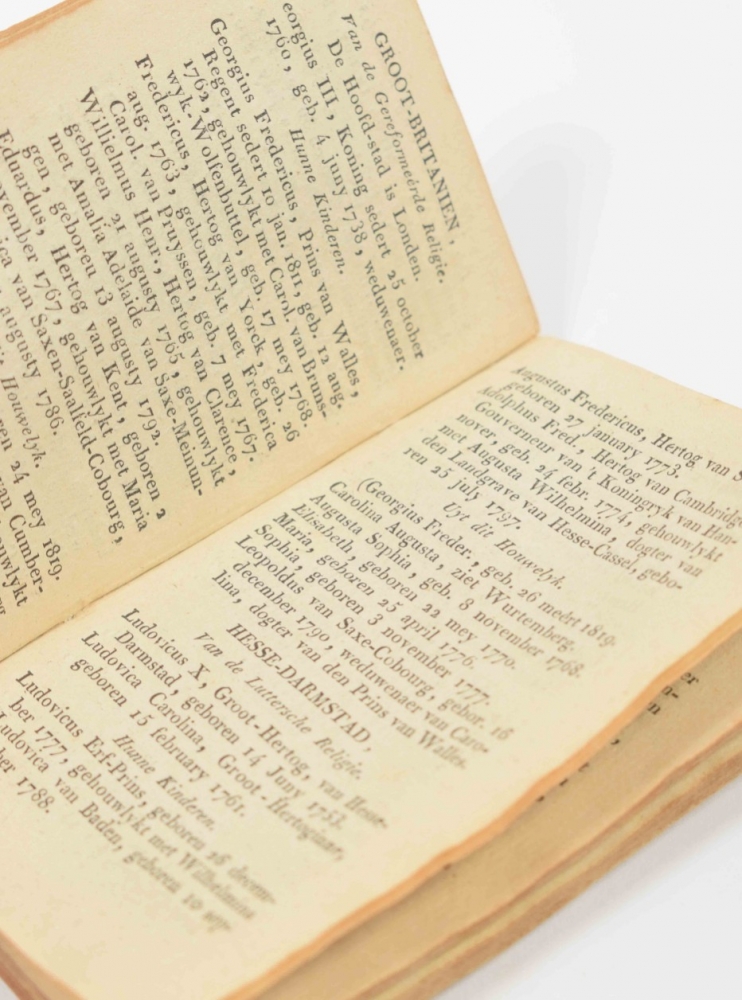 GROOT-BRITANIEN,
Van de Gereformeerde Religie.
De Hoofd-stad is Londen.
eorgius III, Koning sedert 25 october
1760, geb. 4 juny 1738, weduwenaer.
Hunne Kinderen.
Georgius Fredericus, Prins van Walles,
Regent sedert 10 jan. 1811, geb. 12 aug.
1762, gehouwlykt met Carol. van Bruns-
wyk-Wolfenbuttel, geb. 17 mey 1768.
Fredericus, Hertog van Yorck, geb. 26
aug. 1763, gehouwlykt met Frederica
Carol. van Pruyssen, geb. 7 mey 1767.
Willielmus Henr., Hertog van Clarence,
geboren 21 augusty 1765, gehouwlykt
met Amalia Adelaide van Saxe-Meinun-
gen, geboren 13 augusty 1792.
Eduardus, Hertog van Kent, geboren 2
november 1767, gehouwlykt met Maria
ica van Saxen-Saalfeld-Cobourg,
augusty 1786.
Houwelyk.
ren 24 mey 1819.
van Cumber-
ouwlykt
Augustus Fredericus, Hertog van S
geboren 27 january 1773.
Adolphus Fred., Hertog van Cambridge
Gouverneur van 't Koningryk van Han-
nover, geb. 24 febr. 1774, gehouwlykt
met Augusta Wilhelmina, dogter van
den Landgrave van Hesse-Cassel, gebo-
ren 25 july 1797.
Uyt dit Houwelyk.
(Georgius Freder., geb. 26 meert 1819.
Carolina Augusta, ziet Wurtemberg.
Augusta Sophia, geb. 8 november 1768.
Elisabeth, geboren 22 mey 1770.
Maria, geboren 25 april 1776.
Sophia, geboren 3 november 1777.
Leopoldus van Saxe-Cobourg, gebor. 16
december 1790, weduwenaer van Caro-
lina, dogter van den Prins van Walles.
HESSE-DARMSTAD,
Van de Luttersche Religie.
Ludovicus X, Groot-Hertog, van Hesse-
Darmstad, geboren 14 Juny 1753.
Ludovica Carolina, Groot-Hertoginne,
geboren 15 february 1761.
Hunne Kinderen.
Ludovicus Erf-Prins, geboren 26 decem-
ber 1777, gehouwlykt met Wilhelmina
Ludovica van Baden, geboren 10 sep-
ber 1788.